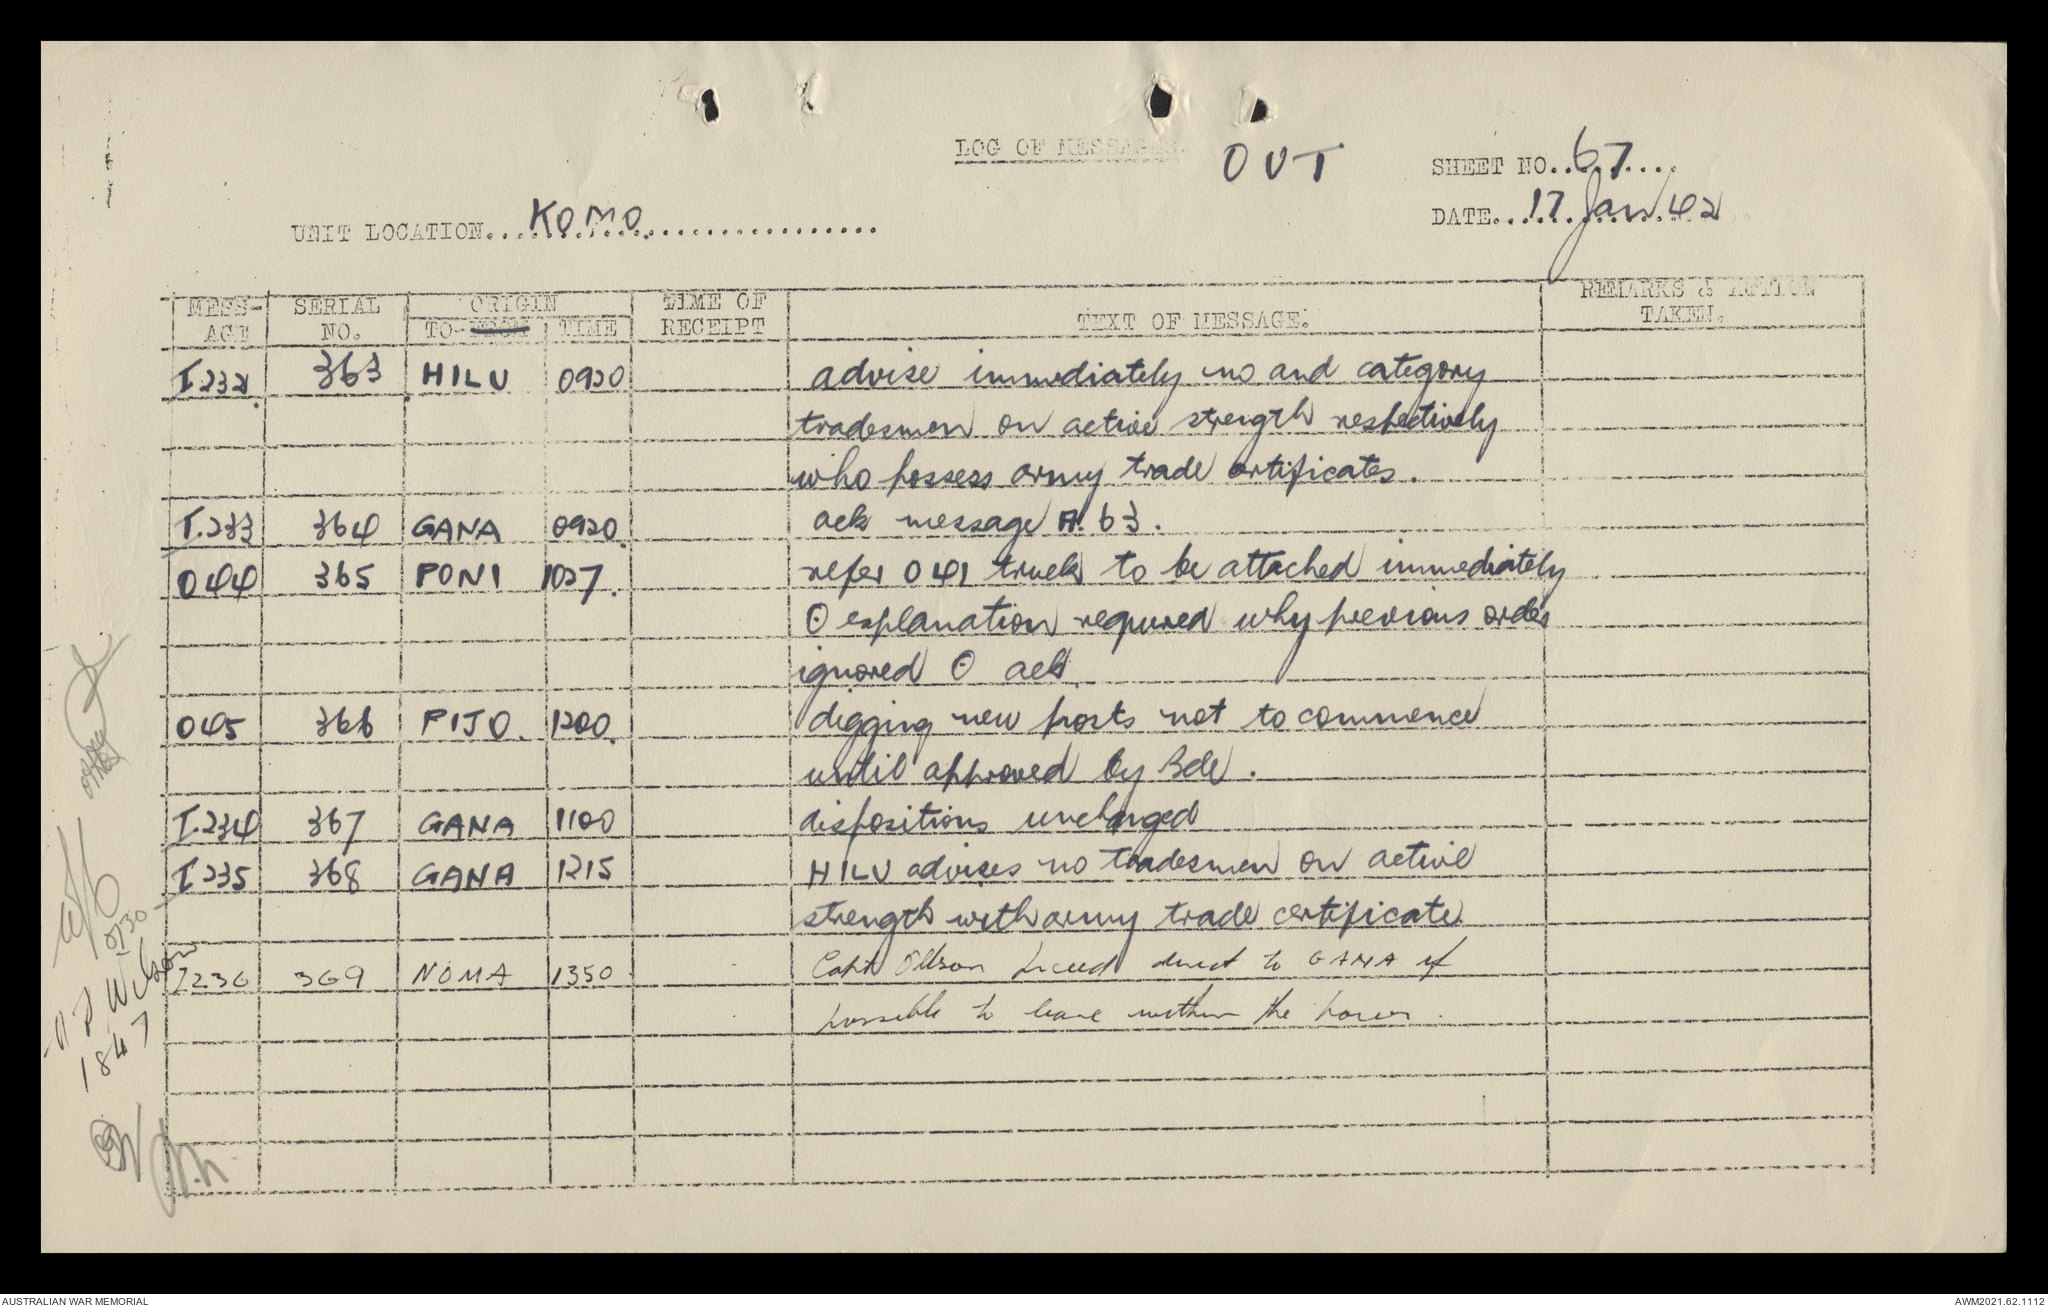 LOG OF MESSAGES. OUT
SHEET NO. 67
UNIT LOCATION KOMO
DATE 17 Jan/42
MESS-AGE SERIAL NO. ORIGIN TO- FROM TIME TIME OF RECEIPT TEXT OF MESSAGE. REMARKS & ACTION TAKEN.
I.232. 363 HILU 0920 advise immediately no and category
tradesmen on active strength respectively
who possess army trade certificates.
I.233 364 GANA 0920. ack message A.63.
044 365 PONI 1027. refer 041 truck to be attached immediately
⊙ explanation required why previous order
ignored ⊙ ack.
045 366 PIJO. 1200. digging new posts not to commence
until approved by Bde.
I.234 367 GANA 1100 dispositions unchanged
I235 368 GANA 1215 HILU advises no tradesmen on active
strength with army trade certificate.
I236 369 NOMA 1350 Capt Ollson proceed direct to GANA if
possible to leave within the hour.
0730
Wilson
1847
AUSTRALIAN WAR MEMORIAL
AWM2021.62.1112